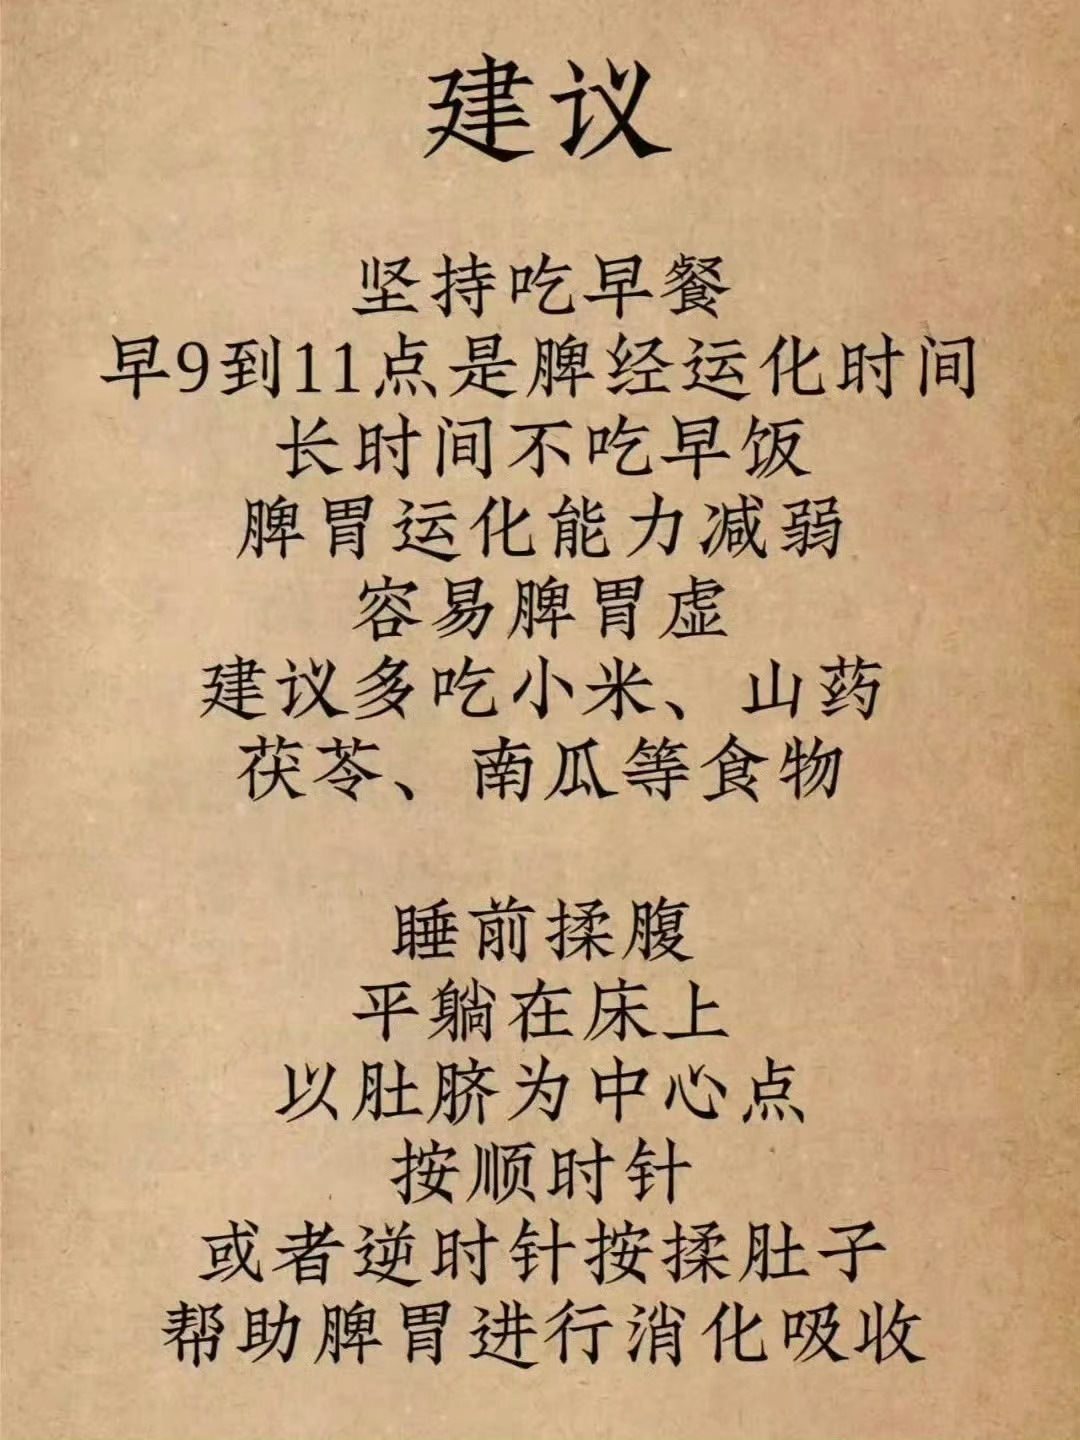 建议
坚持吃早餐
早9到11点是脾经运化时间
长时间不吃早饭
脾胃运化能力减弱
容易脾胃虚
建议多吃小米、山药
茯苓、南瓜等食物
睡前揉腹
平躺在床上
以肚脐为中心点
按顺时针
或者逆时针按揉肚子
帮助脾胃进行消化吸收